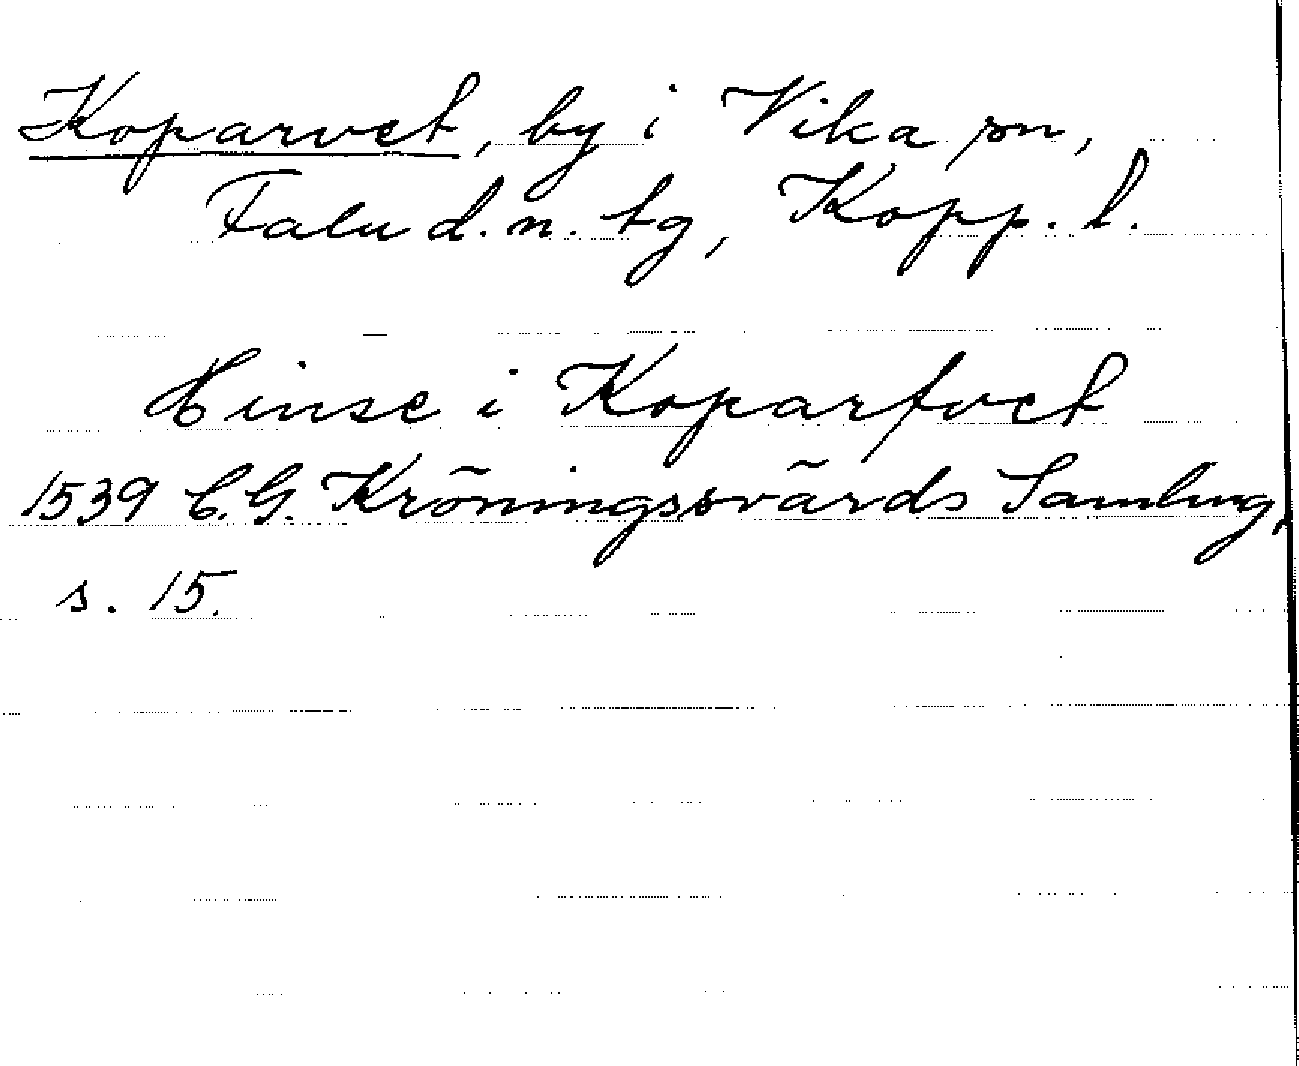 Koparvet, by i Vika sn,
Falu d.n. tg, Kopp. l.
Hinse i Koparfvet
1539 C.G. Kröningssvärds Samling,
s. 15.